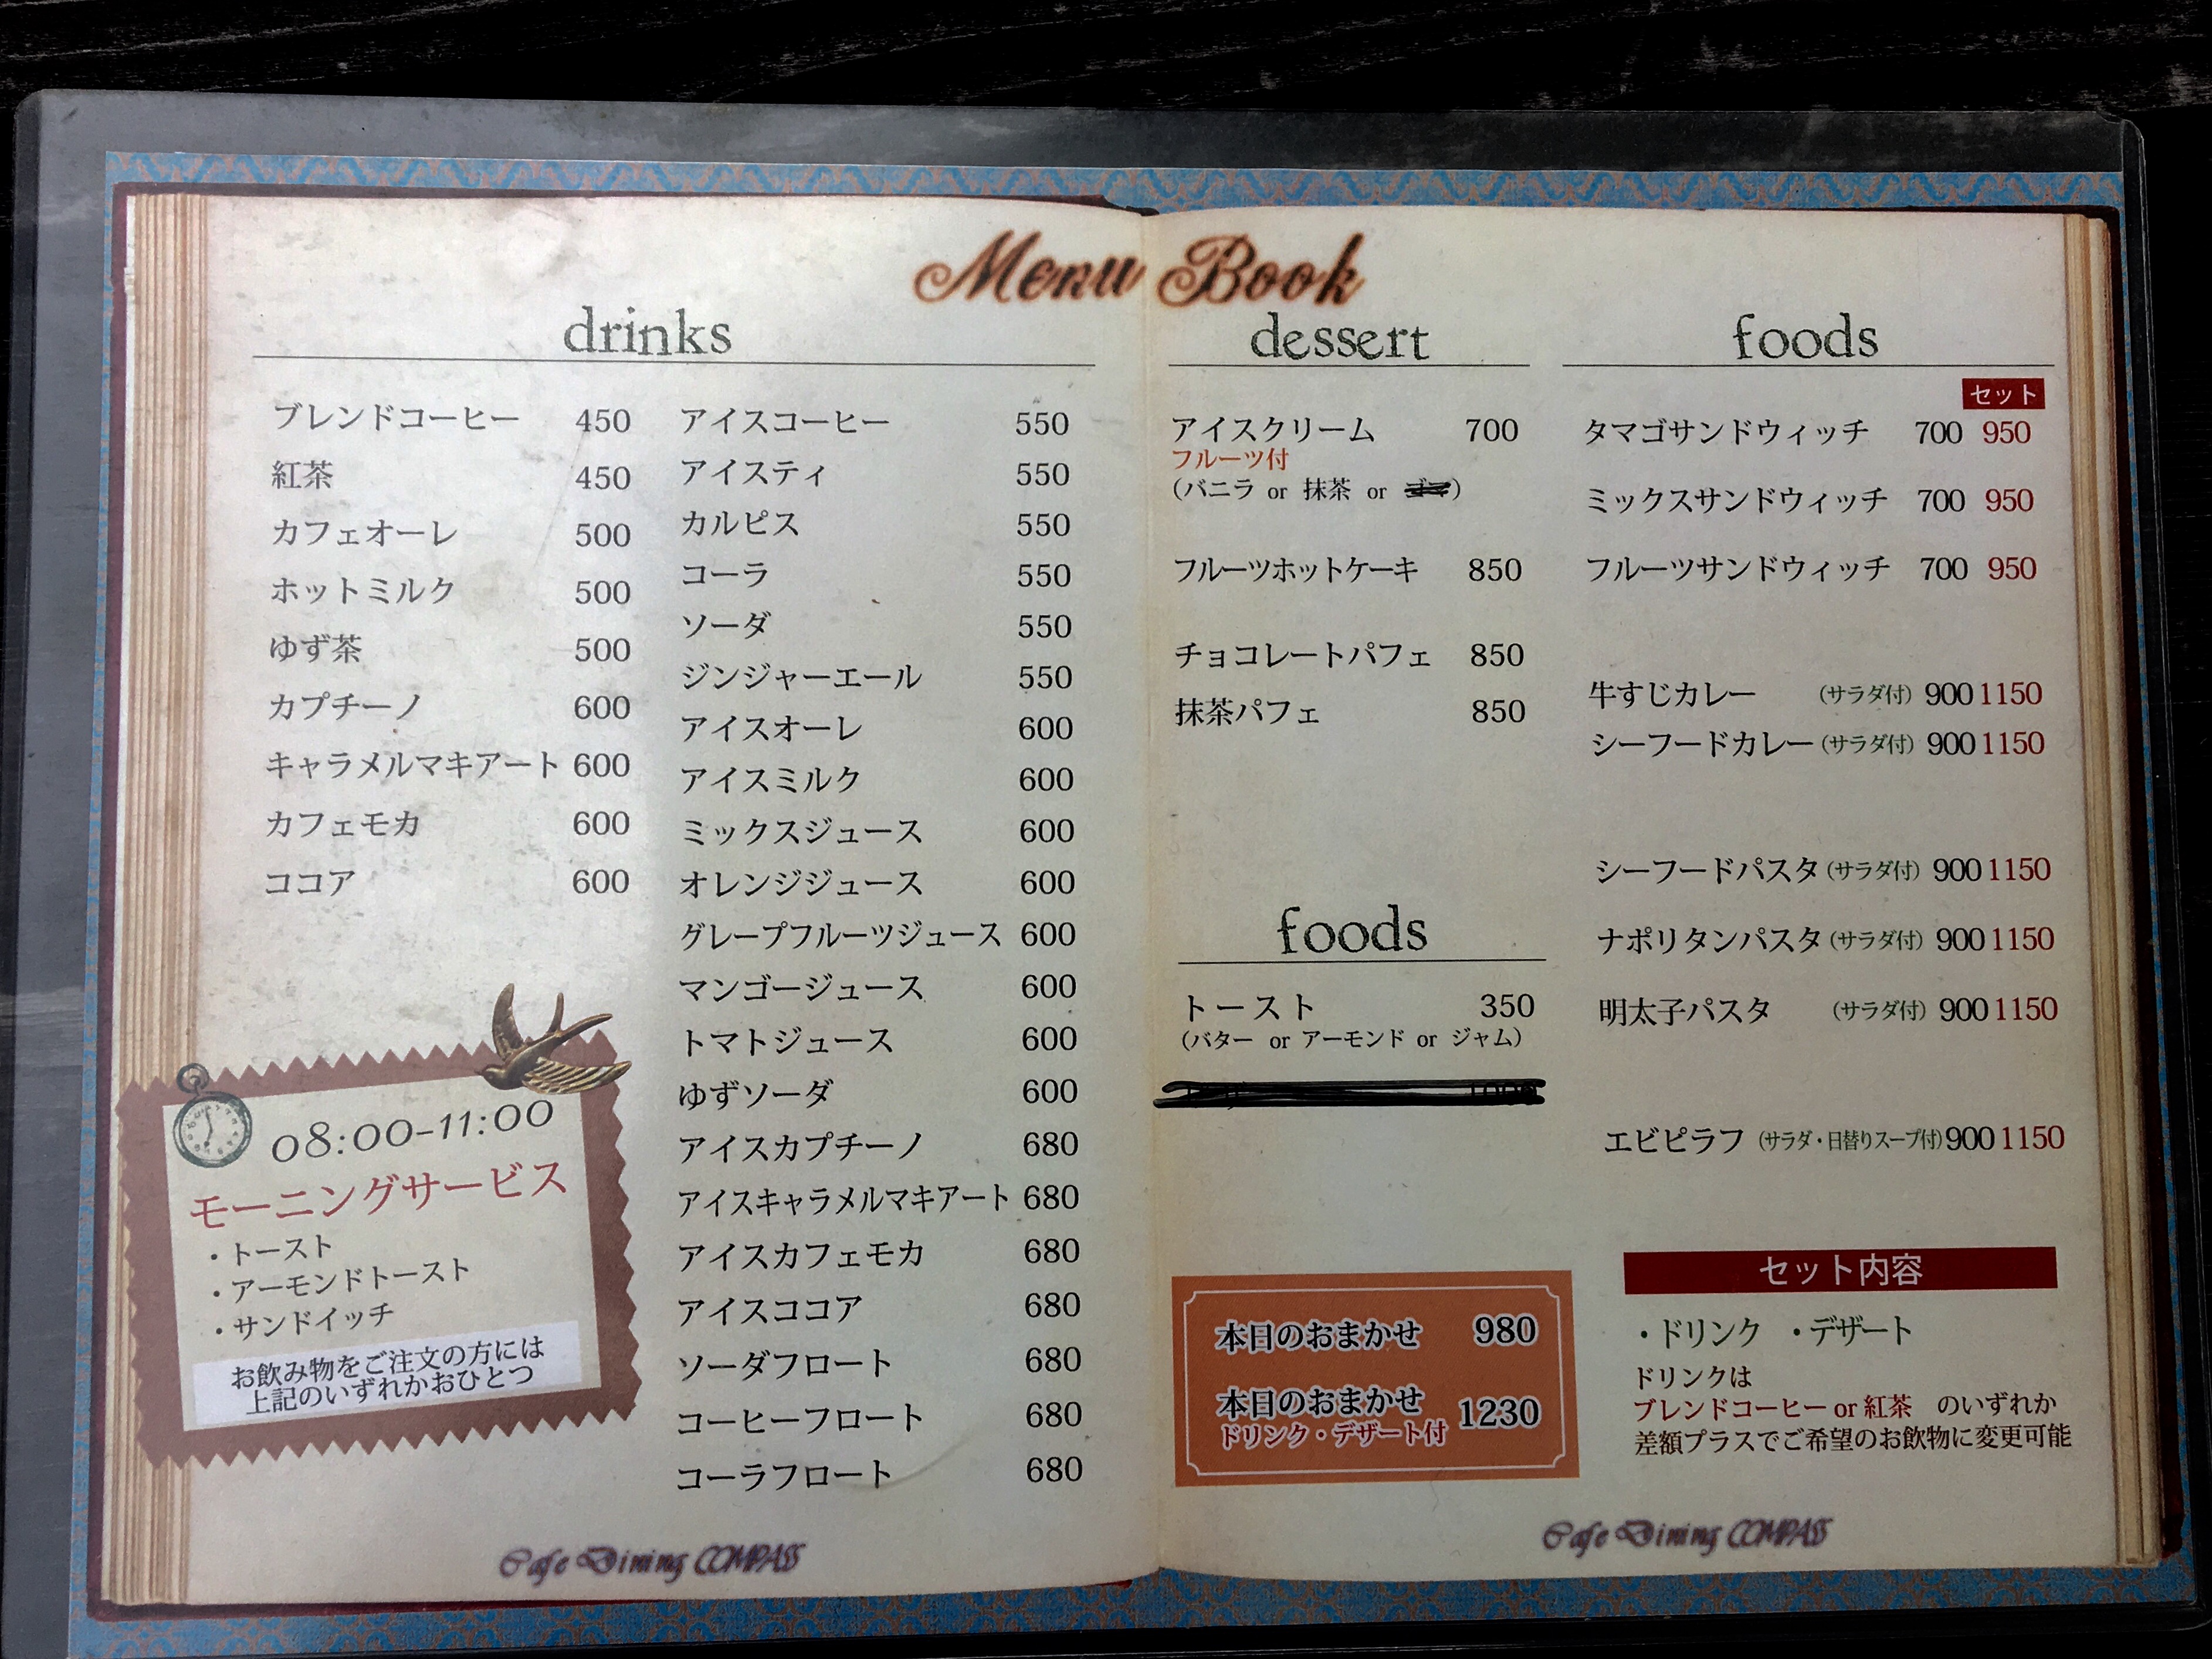 Menu Book
drinks
ブレンドコーヒー 450
紅茶 450
カフェオーレ 500
ホットミルク 500
ゆず茶 500
カプチーノ 600
キャラメルマキアート 600
カフェモカ 600
ココア 600
08:00-11:00
モーニングサービス
・トースト
・アーモンドトースト
・サンドイッチ
お飲み物をご注文の方には
上記のいずれかおひとつ
アイスコーヒー 550
アイスティ 550
カルピス 550
コーラ 550
ソーダ 550
ジンジャーエール 550
アイスオーレ 600
アイスミルク 600
ミックスジュース 600
オレンジジュース 600
グレープフルーツジュース 600
マンゴージュース 600
トマトジュース 600
ゆずソーダ 600
アイスカプチーノ 680
アイスキャラメルマキアート 680
アイスカフェモカ 680
アイスココア 680
ソーダフロート 680
コーヒーフロート 680
コーラフロート 680
Cafe Dining COMPASS
dessert
アイスクリーム 700
フルーツ付
(バニラ or 抹茶 or )
フルーツホットケーキ 850
チョコレートパフェ 850
抹茶パフェ 850
foods
トースト 350
(バター or アーモンド or ジャム)
本日のおまかせ 980
本日のおまかせ 1230
ドリンク・デザート付
foods
セット
タマゴサンドウィッチ 700 950
ミックスサンドウィッチ 700 950
フルーツサンドウィッチ 700 950
牛すじカレー (サラダ付) 900 1150
シーフードカレー (サラダ付) 900 1150
シーフードパスタ (サラダ付) 900 1150
ナポリタンパスタ (サラダ付) 900 1150
明太子パスタ (サラダ付) 900 1150
エビピラフ (サラダ・日替りスープ付) 900 1150
セット内容
・ドリンク ・デザート
ドリンクは
ブレンドコーヒー or 紅茶 のいずれか
差額プラスでご希望のお飲物に変更可能
Cafe Dining COMPASS